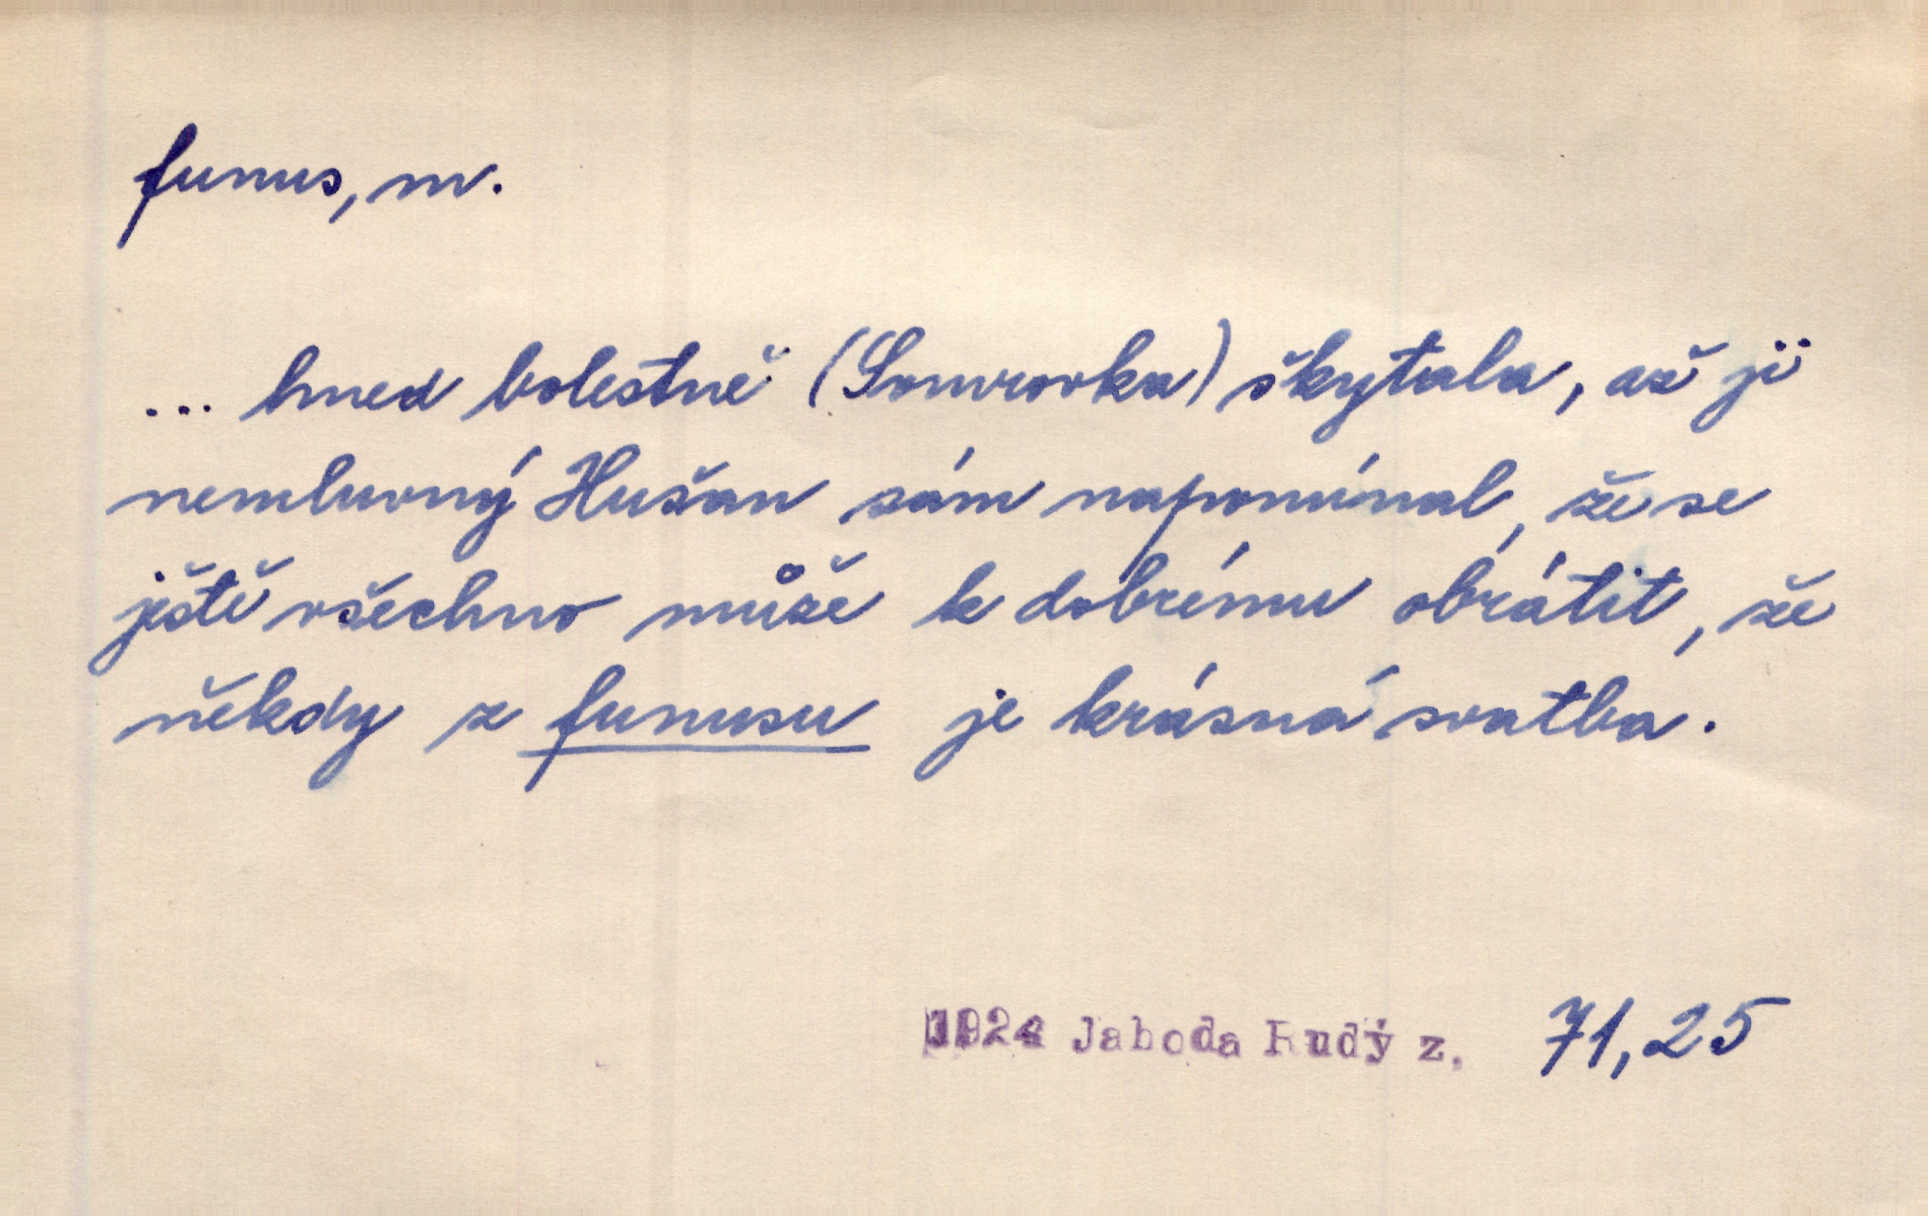 funus, m.
... hned bolestně (Somrovka) škytala, až ji
nemluvný Hušan sám napomínal, že se
ještě všechno může k dobrému obrátit, že
někdy z funusu je krásná svatba.
1924 Jahoda Rudý z. 71,25